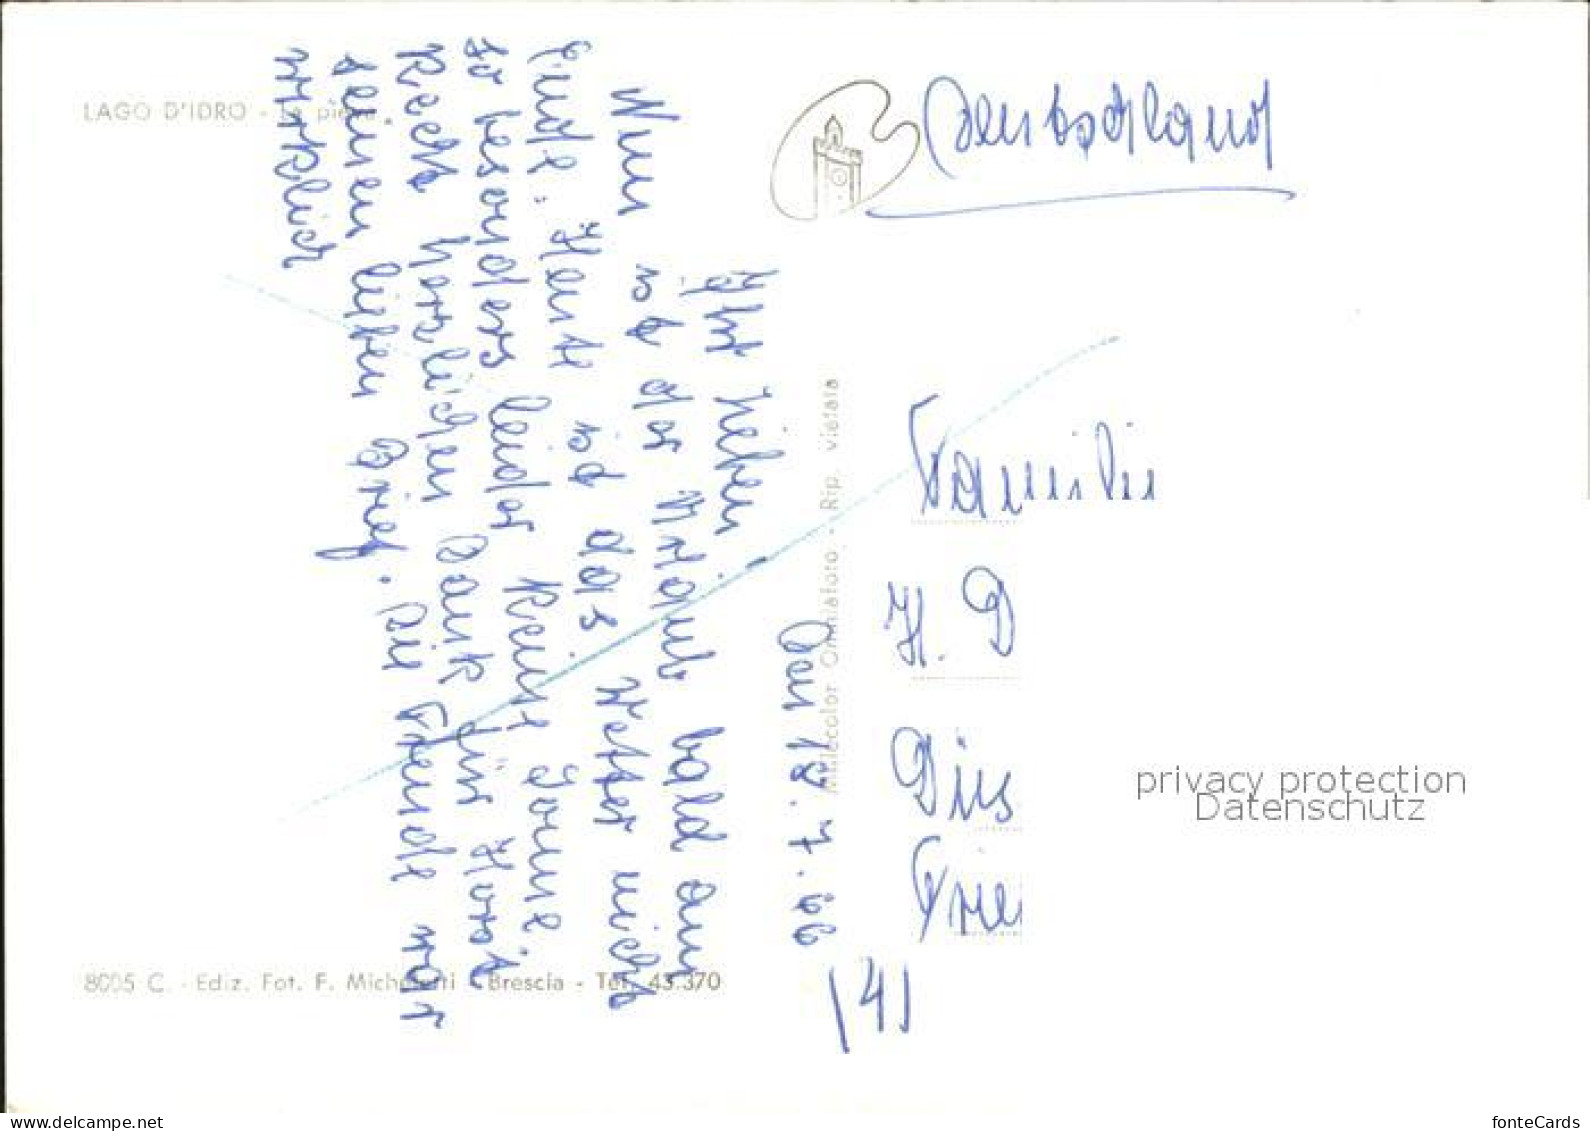 LAGO D'IDRO - La pieve
Deutschland
Den 18. 7. 66
Ihr Lieben
Nun ist der Urlaub bald am
Ende. Heute ist das Wetter nicht
so besonders leider keine Sonne.
Recht herzlichen Dank für Horst
seinen lieben Brief. Die Freude war
wirklich
Millecolor Omniafoto - Rip. vietata
Familie
H. D
Düs
Frie
141
8005 C. - Ediz. Fot. F. Micheletti - Brescia - Tel. 43.370
privacy protection
Datenschutz
www.delcampe.net
fonteCards